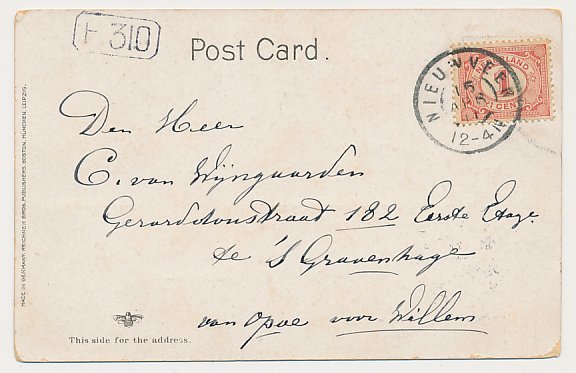 310
Post Card.
NIEUWVEEN
15
12-4N
NEDERLAND
1 CENT
Den Heer
C. van Wijngaarden
Gerard Doustraat 182 Eerste Etage
te 's Gravenhage
van Opoe voor Willem
This side for the address.
MADE IN GERMANY, REICHNER BROS. PUBLISHERS. BOSTON, MUNCHEN, LEIPZIG.